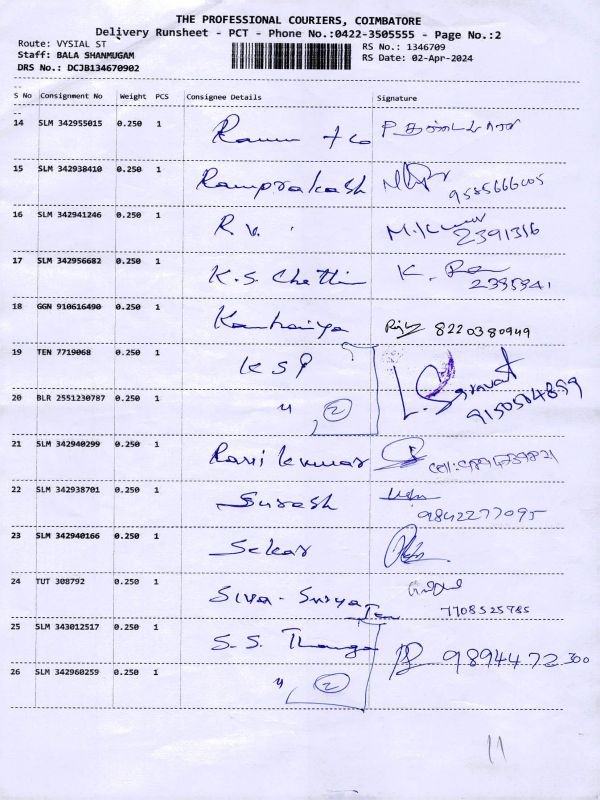 THE PROFESSIONAL COURIERS, COIMBATORE
Delivery Runsheet - PCT - Phone No.:0422-3505555 - Page No.:2
Route: VYSIAL ST RS No.: 1346709
Staff: BALA SHANMUGAM RS Date: 02-Apr-2024
DRS No.: DCJB134670902
S No Consignment No Weight PCS Consignee Details Signature
14 SLM 342955015 0.250 1
15 SLM 342938410 0.250 1 Ramprakash
16 SLM 342941246 0.250 1 R.V. 2391316
17 SLM 342956682 0.250 1 K.S. Chettiar K.
18 GGN 910616490 0.250 1 Kanhaiya 8220380949
19 TEN 7719068 0.250 1 KSP
20 BLR 2551230787 0.250 1 " 2
21 SLM 342940299 0.250 1 Ravi kumar
22 SLM 342938701 0.250 1 Suresh
9842277095
23 SLM 342940166 0.250 1 Sekar
24 TUT 308792 0.250 1 Siva-Surya
7708525785
25 SLM 343012517 0.250 1 S.S. 9894472300
26 SLM 342960259 0.250 1 " 2
11